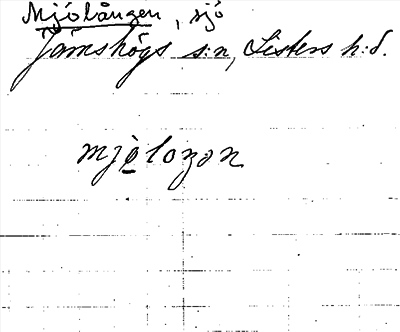 Mjölången, sjö
Jämshögs s:n, Listers h:d.
mjȯ̱lozən